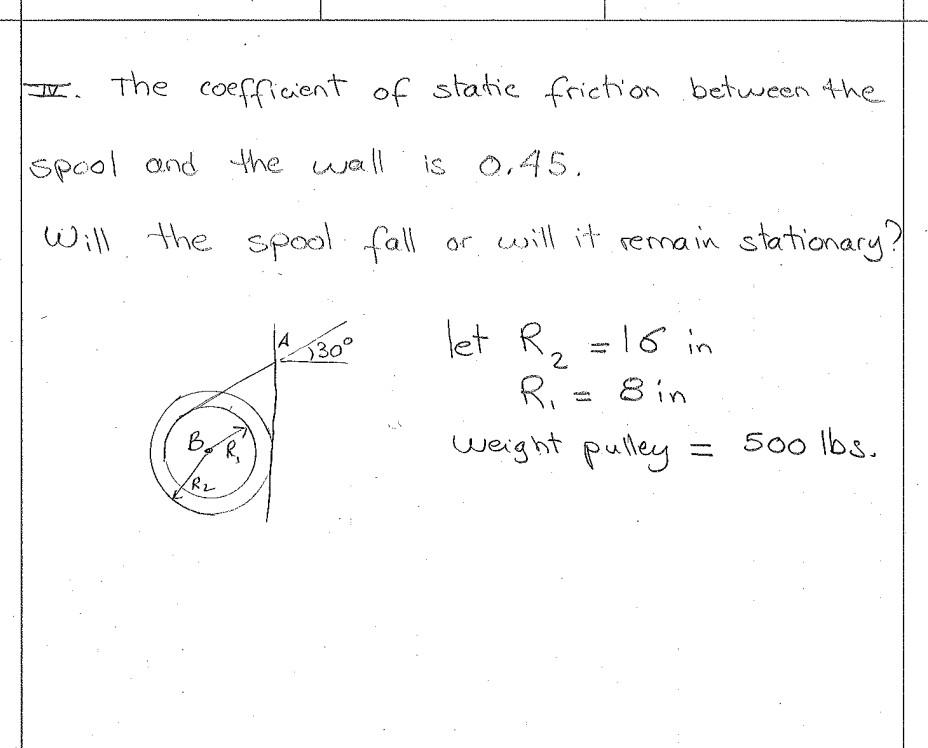 IV. The coefficient of static friction between the
spool and the wall is 0.45.
Will the spool fall or will it remain stationary?
A
30°
B
R₁
R₂
let R₂ = 16 in
R₁ = 8 in
weight pulley = 500 lbs.